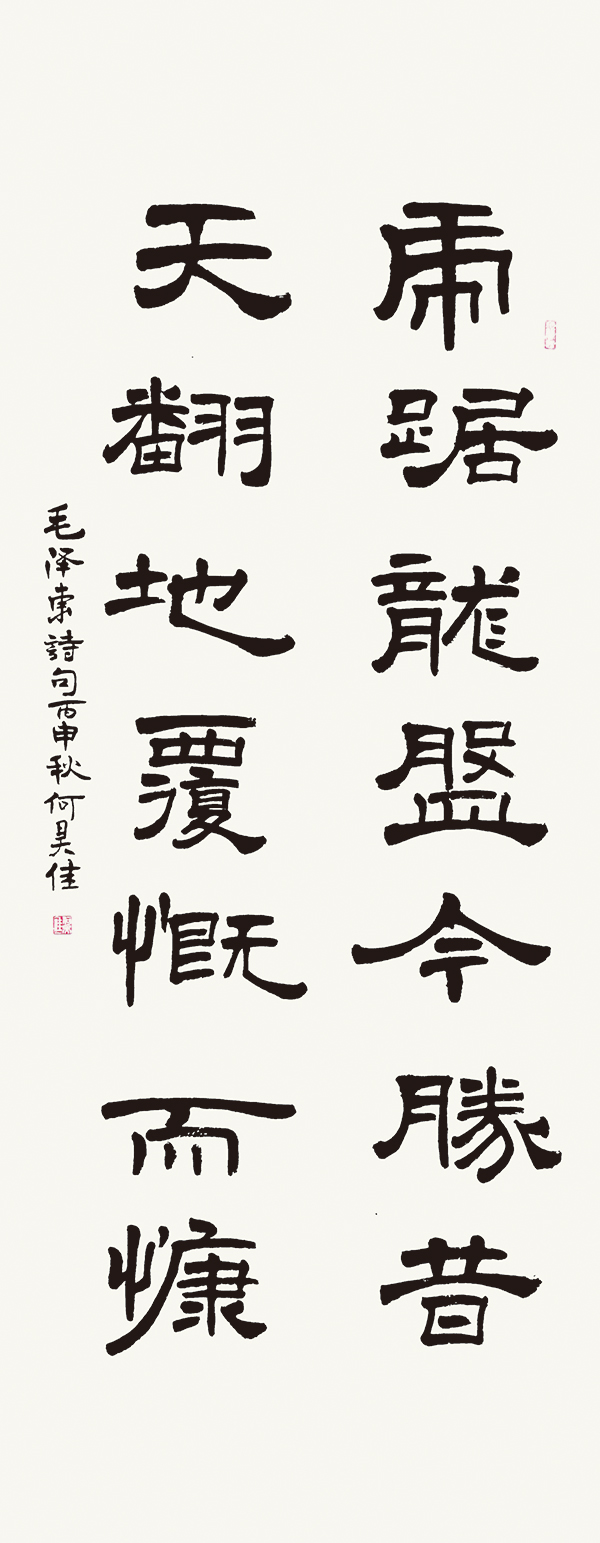 虎踞龍盤今勝昔
天翻地覆慨而慷
毛泽東詩句丙申秋何昊佳